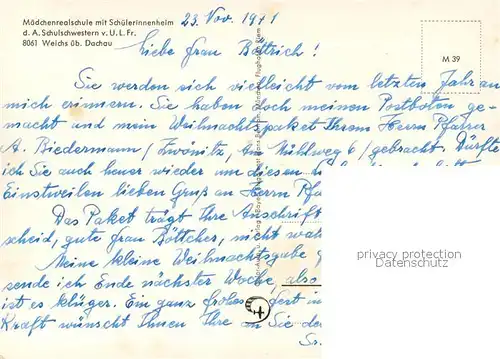 Mädchenrealschule mit Schülerinnenheim
d. A. Schulschwestern v. U. L. Fr.
8061 Weichs üb. Dachau
23. Nov. 1971
M 39
Liebe Frau Böttrich!
Sie werden sich vielleicht vom letzten Jahr an
mich erinnern. Sie haben doch meinen Postboten ge-
macht und mein Weihnachtspaket Ihrem Herrn Pfarrer
A. Biedermann / Zwönitz, Am Mühlweg 6 / gebracht. Dürfte
ich Sie auch heuer wieder um diesen
Einstweilen lieben Gruß an Herrn Pfa
Das Paket trägt Ihre Anschrift
scheid, gute Frau Böttcher, nicht wah
Meine kleine Weihnachtsgabe
sende ich Ende nächster Woche, also
ist es klüger. Ein ganz frohes Fest in
Kraft wünscht Ihnen Ihre an Sie de
Sr.
privacy protection
Datenschutz